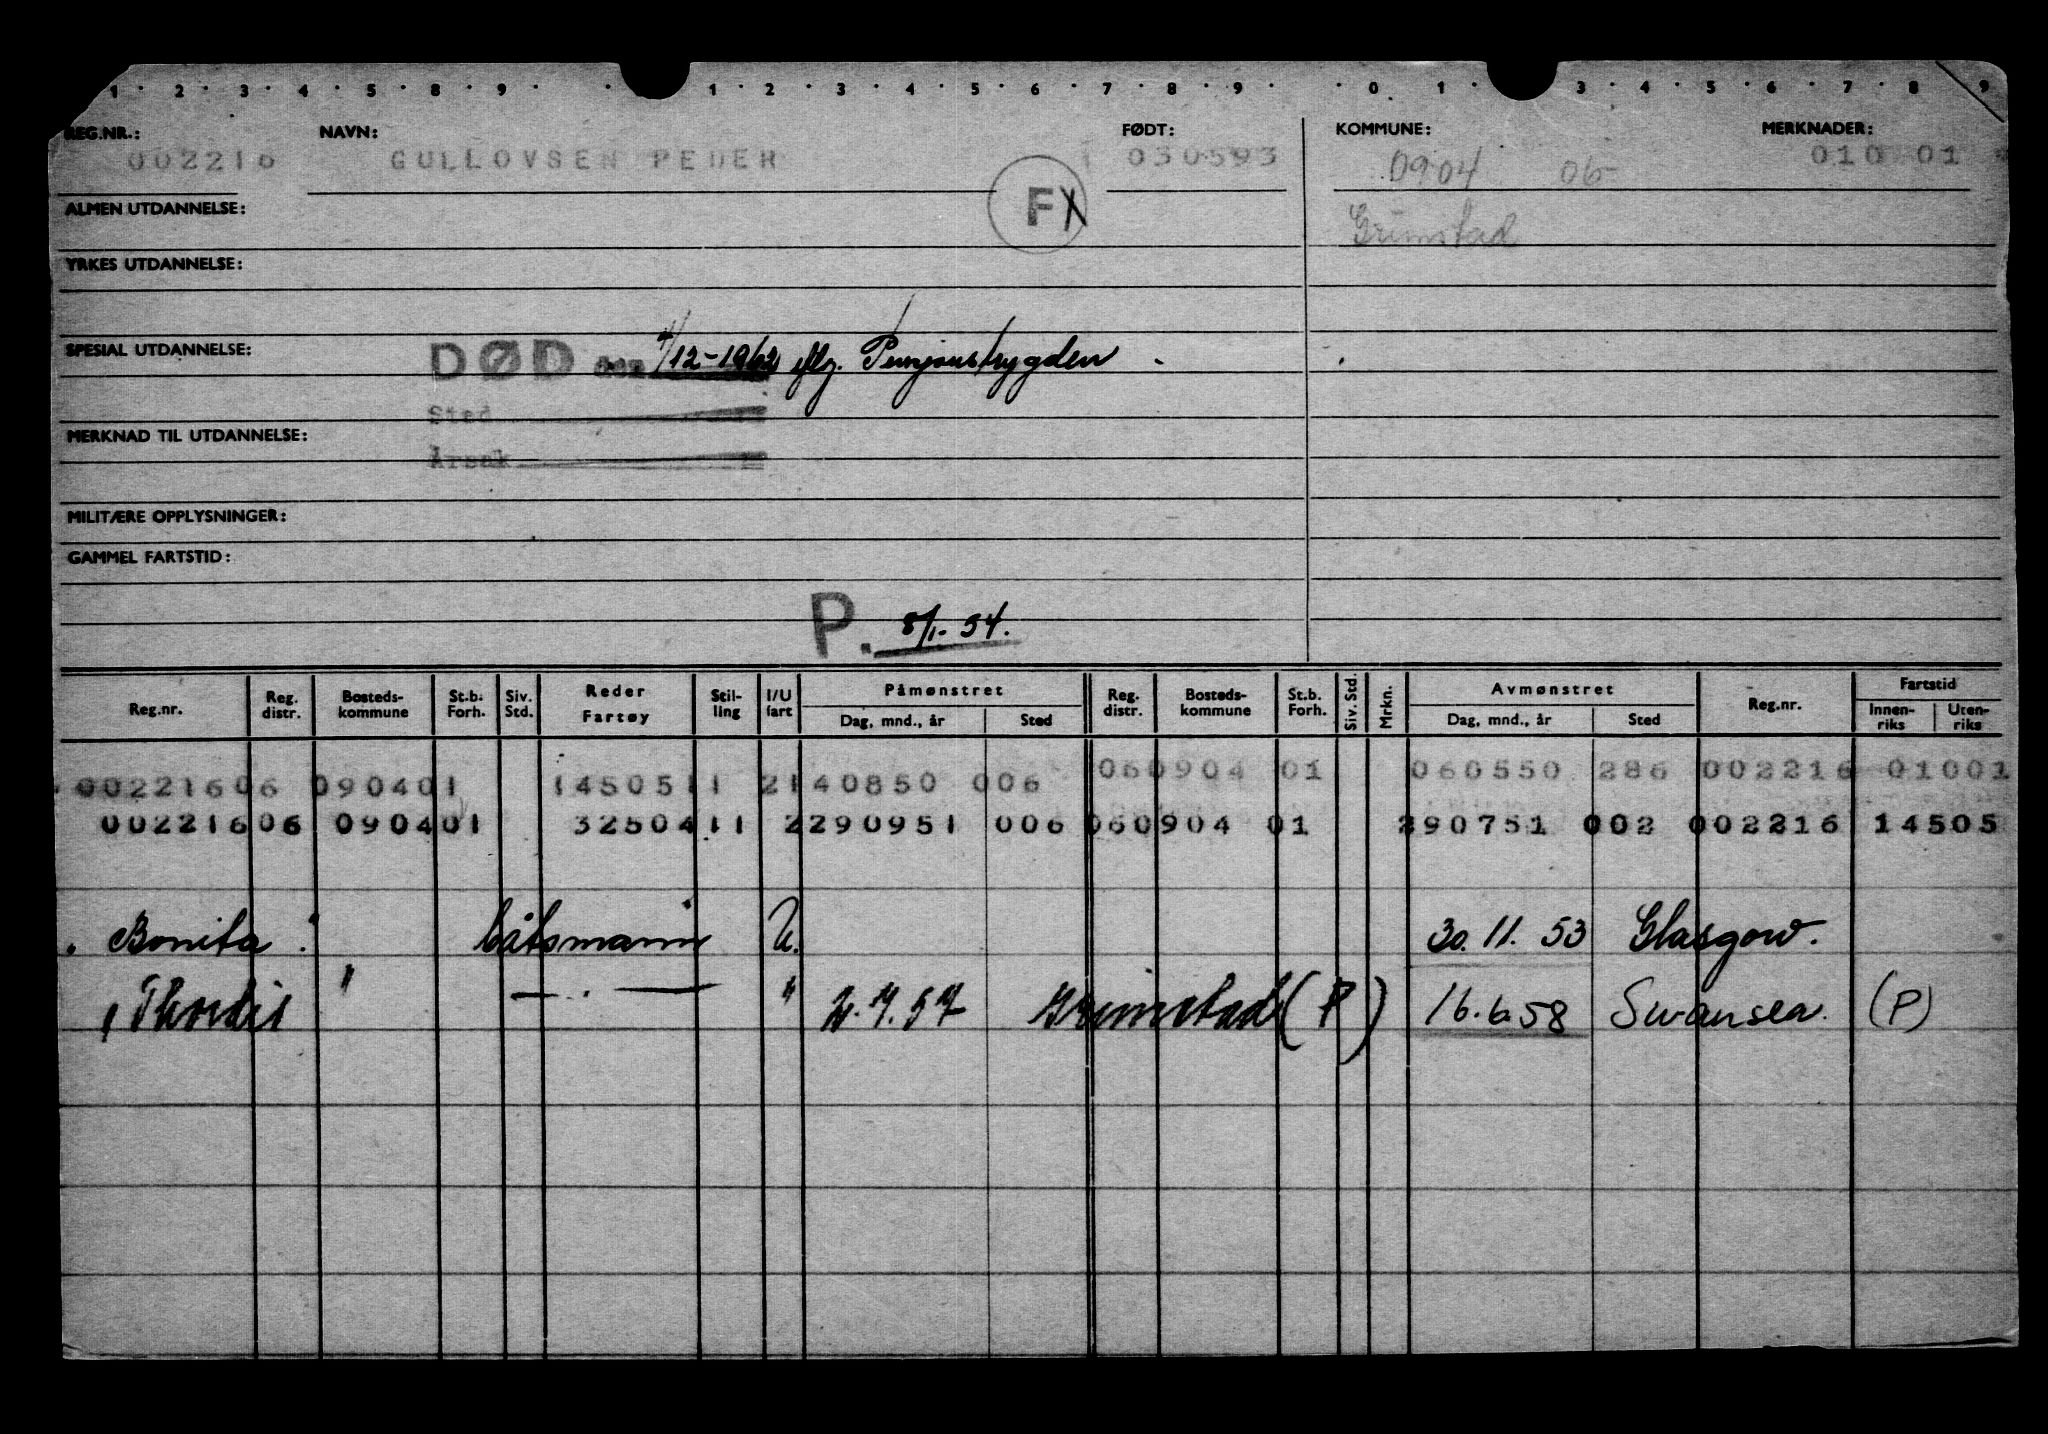 1 · 2 · 3 · 4 · 5 · 8 · 9 · · 1 · 2 · 3 · 4 · 5 · 6 · 7 · 8 · 9 · · 0 · 1 · 3 · 4 · 5 · 6 · 7 · 8 9
REG.NR.: NAVN: FØDT: KOMMUNE: MERKNADER:
002216 GULLOVSEN PEDER 030593 0904 06 010 01
FX
ALMEN UTDANNELSE: Grimstad
YRKES UTDANNELSE:
SPESIAL UTDANNELSE: DØD den 4/12-1962 iflg. Pensjonstrygden
Sted
MERKNAD TIL UTDANNELSE:
Årsak
MILITÆRE OPPLYSNINGER:
GAMMEL FARTSTID:
P. 8/1-54.
Reg.nr. Reg. distr. Bosteds-kommune St.b. Forh. Siv. Std. Reder Fartøy Stil-ling I/U fart Påmønstret Dag, mnd., år Sted Reg. distr. Bosteds-kommune St.b. Forh. Siv. Std. Mrkn. Avmønstret Dag, mnd., år Sted Reg.nr. Fartstid Innen-riks Uten-riks
00221606 090401 1450511 2140850 006 060904 01 060550 286 002216 01001
00221606 090401 3250411 2290951 006 060904 01 290751 002 002216 14505
"Bonita" båtsmann U. 30.11.53 Glasgow.
"Thordis" — " — " .57 Grimstad (P) 16.6.58 Swansea. (P)